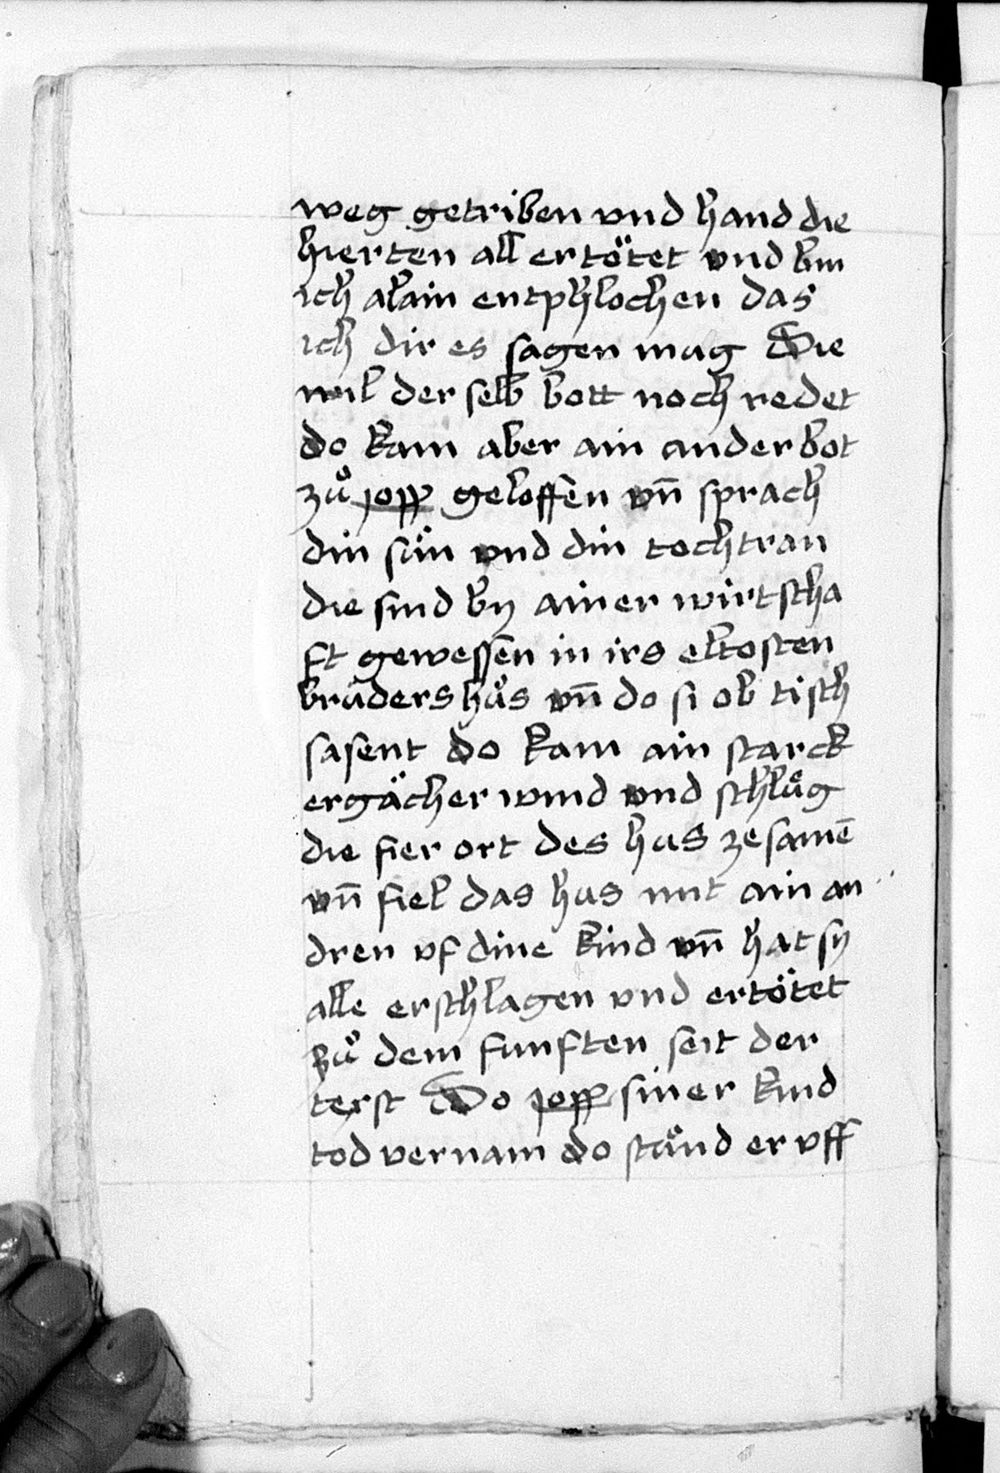 weg getriben vnd hand die
hierten all ertötet vnd bin
ich alain entphlochen das
ich dir es sagen mag Die
wil der selb bott noch redet
do kam aber ain ander bot
zuͦ jopp geloffen vn̄ sprach
din suͤn vnd din tochtran
die sind by ainer wirtscha
ft gewessen in irs eltosten
bruͦders huͦs vn̄ do si ob tisch
sasent do kam ain starck
ergächer wind vnd schluͦg
die fier ort des hus zesamē
vn̄ fiel das hus mit ain an
dren vf dine kind vn̄ hat sy
alle erschlagen vnd ertötet
Zuͦ dem funften seit der
text Do jopp siner kind
tod vernam do stuͦnd er vff